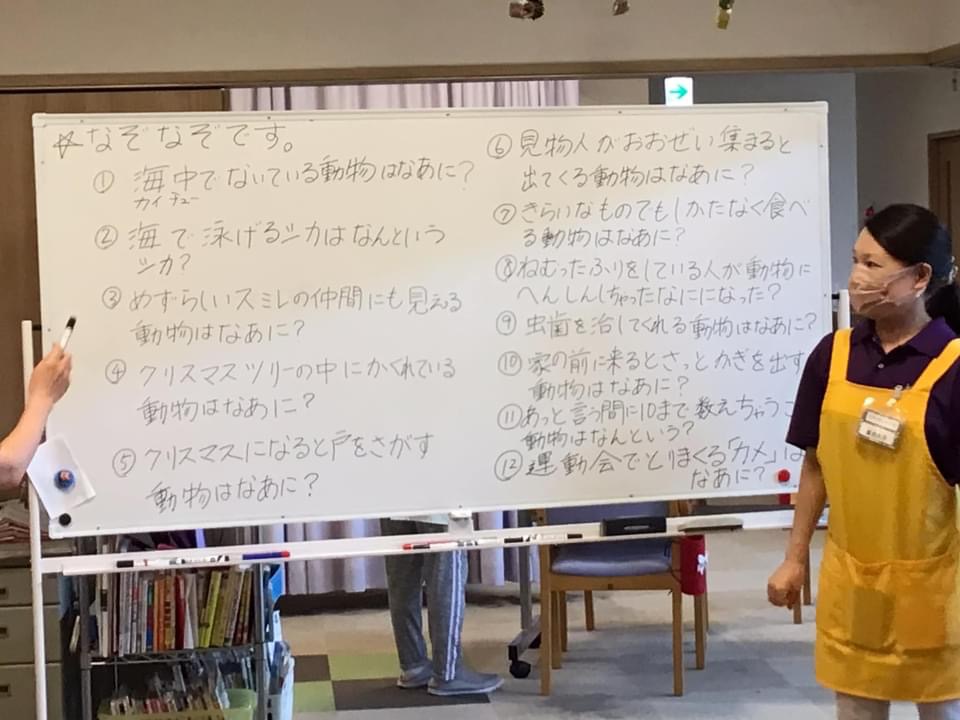 ☆なぞなぞです。
① 海中でないている動物はなあに？
カイチュー
② 海で泳げるシカはなんという
シカ？
③ めずらしいスミレの仲間にも見える
動物はなあに？
④ クリスマスツリーの中にかくれている
動物はなあに？
⑤ クリスマスになると戸をさがす
動物はなあに？
⑥ 見物人がおおぜい集まると
出てくる動物はなあに？
⑦ きらいなものでもしかたなく食べ
る動物はなあに？
⑧ ねむったふりをしている人が動物に
へんしんしちゃったなにになった？
⑨ 虫歯を治してくれる動物はなあに？
⑩ 家の前に来るとさっとかぎを出す
動物はなあに？
⑪ あっと言う間に10まで数えちゃうこ
動物はなんという？
⑫ 運動会でとりまくる「カメ」は
なあに？